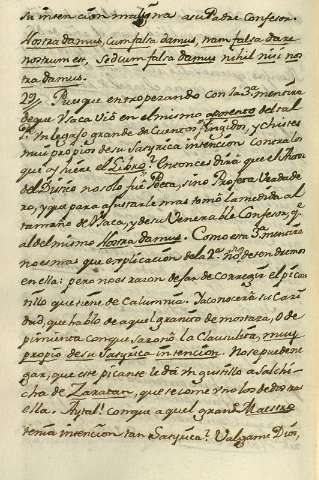 su intencion maligna a su Padre Confesor.
Nostra damus, cum falsa damus, nam falsa dare
nostrum est, sed cum falsa damus nihil nisi nos-
tra damus.
29// Pues que en tropezando con la 3ª mentira
de que Ysaca vió en el mismo aposento del tal
un legajo grande de Cuentos fingidos, y chistes
mui propios de su Satyrica intencion contra los
que Entonces dirá que el Autor
del no solo fue Poeta, sino Profeta Verdade-
ro, y que para ajustarle mas tomó la medida al
tamaño de Ysaca, y de su Venerable Confesor, q.e
al del mismo Nostra damus. Como esta 3ª mentira
no es mas que explicacion de la 2ª no detendremos
en ella: pero no es razon dejar de corregir el peca-
nillo que tiene de Calumnia. Ya conocerá su Cari-
dad, que hablo de aquel granito de mostaza, ó de
pimienta con que sazonó la Clausulita, muy
propio de su Satyrica intencion. No se puede ne-
gar, que este picante le dá un gustillo a Salchi-
cha de Zaratan, que se come uno los dedos tras
ella. Ay tal! con que aquel grande Maestro
tenia intencion tan Satyrica? Valgame Dios,